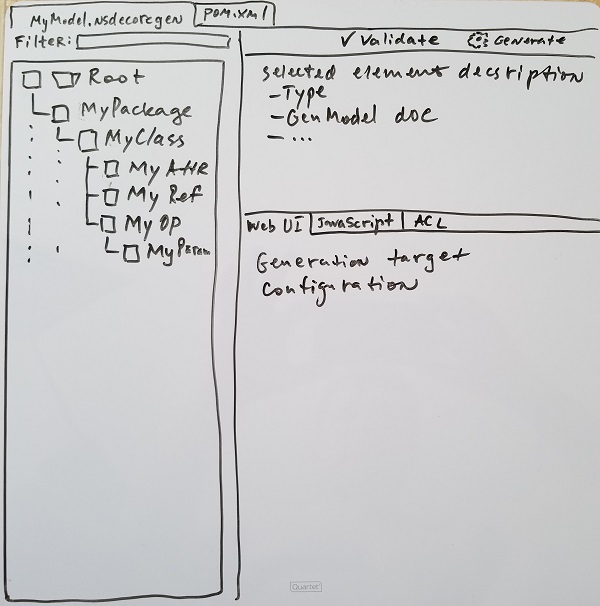 MyModel.nsdecoregen
pom.xml
Filter:
✓ Validate
Generate
Root
MyPackage
MyClass
MyAttr
MyRef
MyOp
MyParam
selected element decsription
- Type
- GenModel doc
- ...
Web UI
Javascript
ACL
Generation target
configuration
Quartet